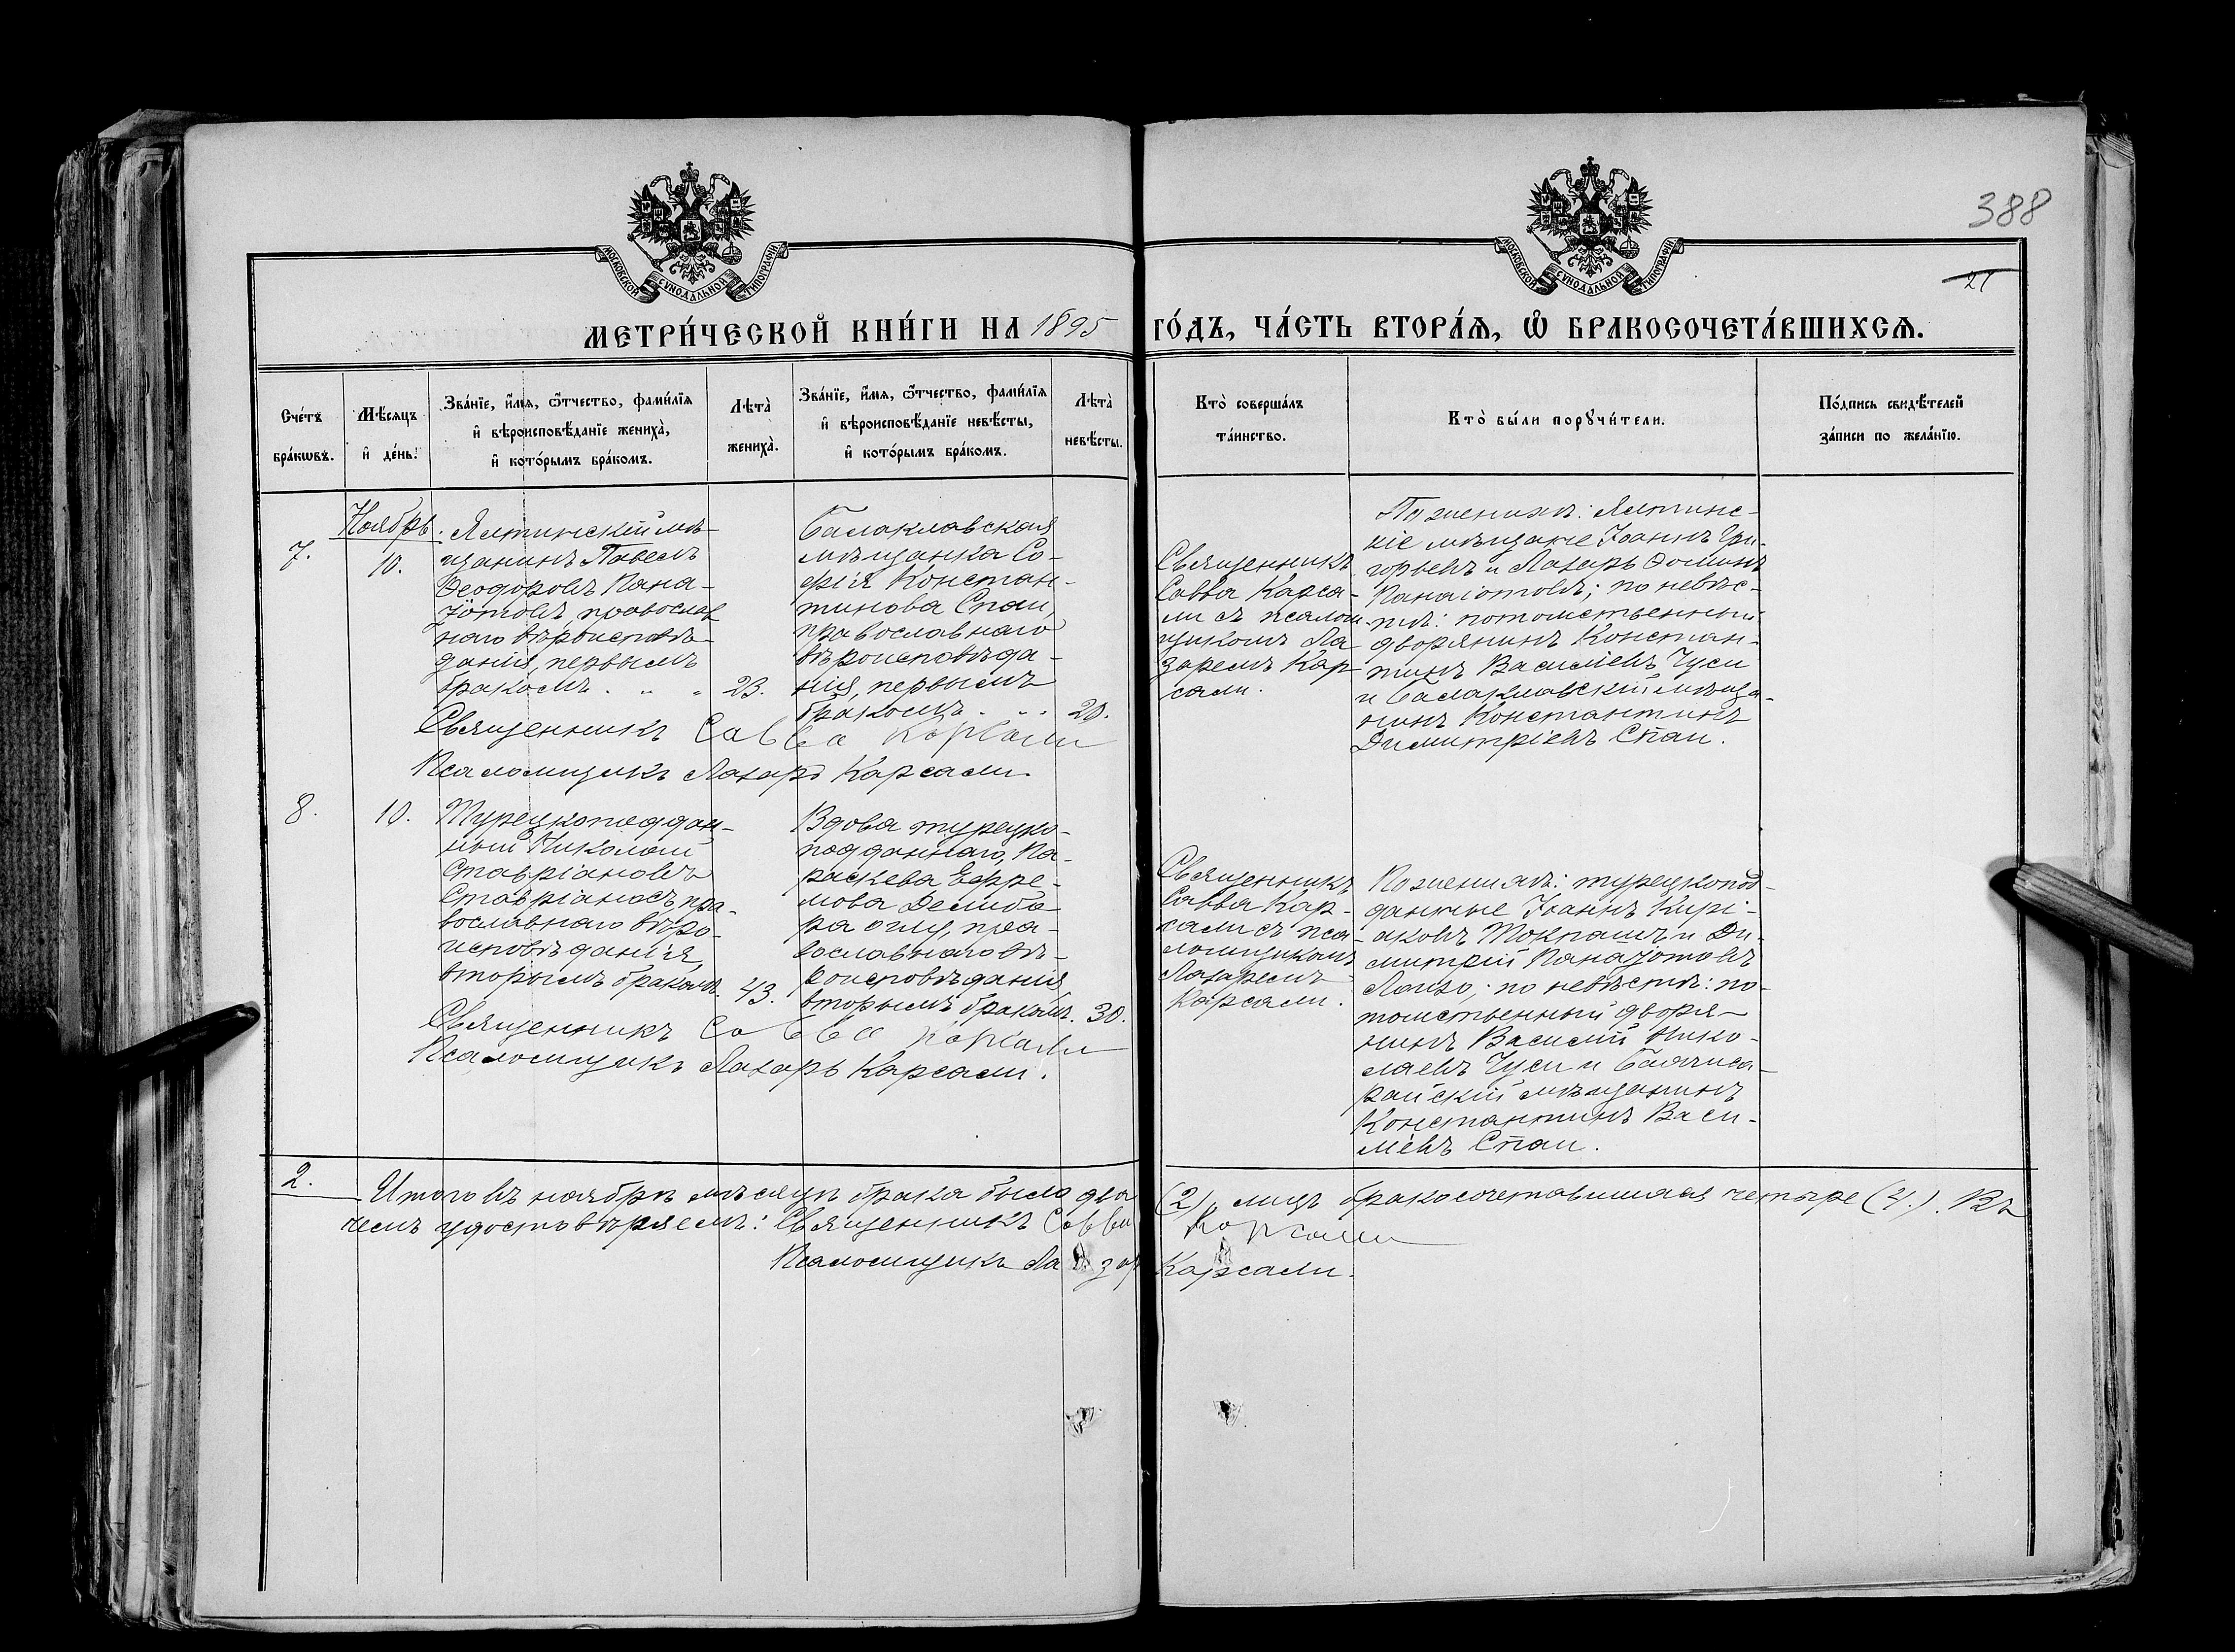 МОСКОВСКОЙ СУНОДАЛЬНОЙ ТИПОГРАФІИ
МОСКОВСКОЙ СУНОДАЛЬНОЙ ТИПОГРАФІИ
388
21
МЕТРИ́ЧЕСКОЙ КНИ́ГИ НА 1895 ГО́ДЪ, ЧА́СТЬ ВТОРА́Я, Ѡ҆ БРАКОСОЧЕТА́ВШИХСѦ.
Сче́тъ
бра́кѡвъ.
Мѣ́сяцъ
и҆ де́нь.
Зва́нїе, и҆́мя, ѻ҆́тчество, фами́лїя
и҆ вѣроисповѣ́данїе жениха̀,
и҆ кото́рымъ бра́комъ.
Лѣта̀
жениха̀.
Зва́нїе, и҆́мя, ѻ҆́тчество, фами́лїя
и҆ вѣроисповѣ́данїе невѣ́сты,
и҆ кото́рымъ бра́комъ.
Лѣта̀
невѣ́сты.
Кто̀ соверша́лъ
та́инство.
Кто̀ бы́ли порꙋчи́тели.
По́дпись свидѣ́телей
за́писи по жела́нїю.
7.
Ноябрь
10.
Ялтинскій мѣ-
щанинъ Павелъ
Ѳеодоровъ Пана-
іотовъ, православ
наго вѣроисповѣ-
данія, первымъ
бракомъ . . .
23.
Балаклавская
мѣщанка Со-
фія Констан-
тинова Спаи,
православнаго
вѣроисповѣда-
нія, первымъ
бракомъ . . .
20.
Священникъ
Савва Карса-
ли съ псалом-
щикомъ Ла-
заремъ Кар-
сали.
По женихѣ: Ялтинс-
кіе мѣщане Іоаннъ Гри-
горьевъ и Лазарь Ѳоминъ
Панаіотовы; по невѣс-
тѣ: потомственный
дворянинъ Констан-
тинъ Василіевъ Чуси
и Балаклавскій мѣща-
нинъ Константинъ
Димитріевъ Спаи.
Священникъ Савва Карсали
Псаломщикъ Лазарь Карсали.
8.
10.
Турецкоподдан-
ный Николай
Ставріановъ
Ставріаносъ, пра-
вославнаго вѣро-
исповѣданія,
вторымъ бракомъ.
43.
Вдова турецко-
подданнаго, Па-
раскева Ефре-
мова
пра-
вославнаго вѣ-
роисповѣданія,
вторымъ бракомъ.
30.
Священникъ
Савва Кар-
сали съ пса-
ломщикомъ
Лазаремъ
Карсали.
По женихѣ: турецкопод-
данные Іоаннъ Кирі-
аковъ и Ди-
митрій Панаіотовъ
по невѣстѣ: по-
томственный дворя-
нинъ Василій Нико-
лаевъ Чуси и Бахчиса-
райскій мѣщанинъ
Константинъ Васи-
ліевъ Спаи.
Священникъ Савва Карсали
Псаломщикъ Лазарь Карсали.
2.
Итого въ ноябрѣ мѣсяцѣ брака было два (2), лицъ бракосочетавшихся четыре (4). Въ
чемъ удостовѣряемъ: Священникъ Савва Карсали
Псаломщикъ Лазарь Карсали.